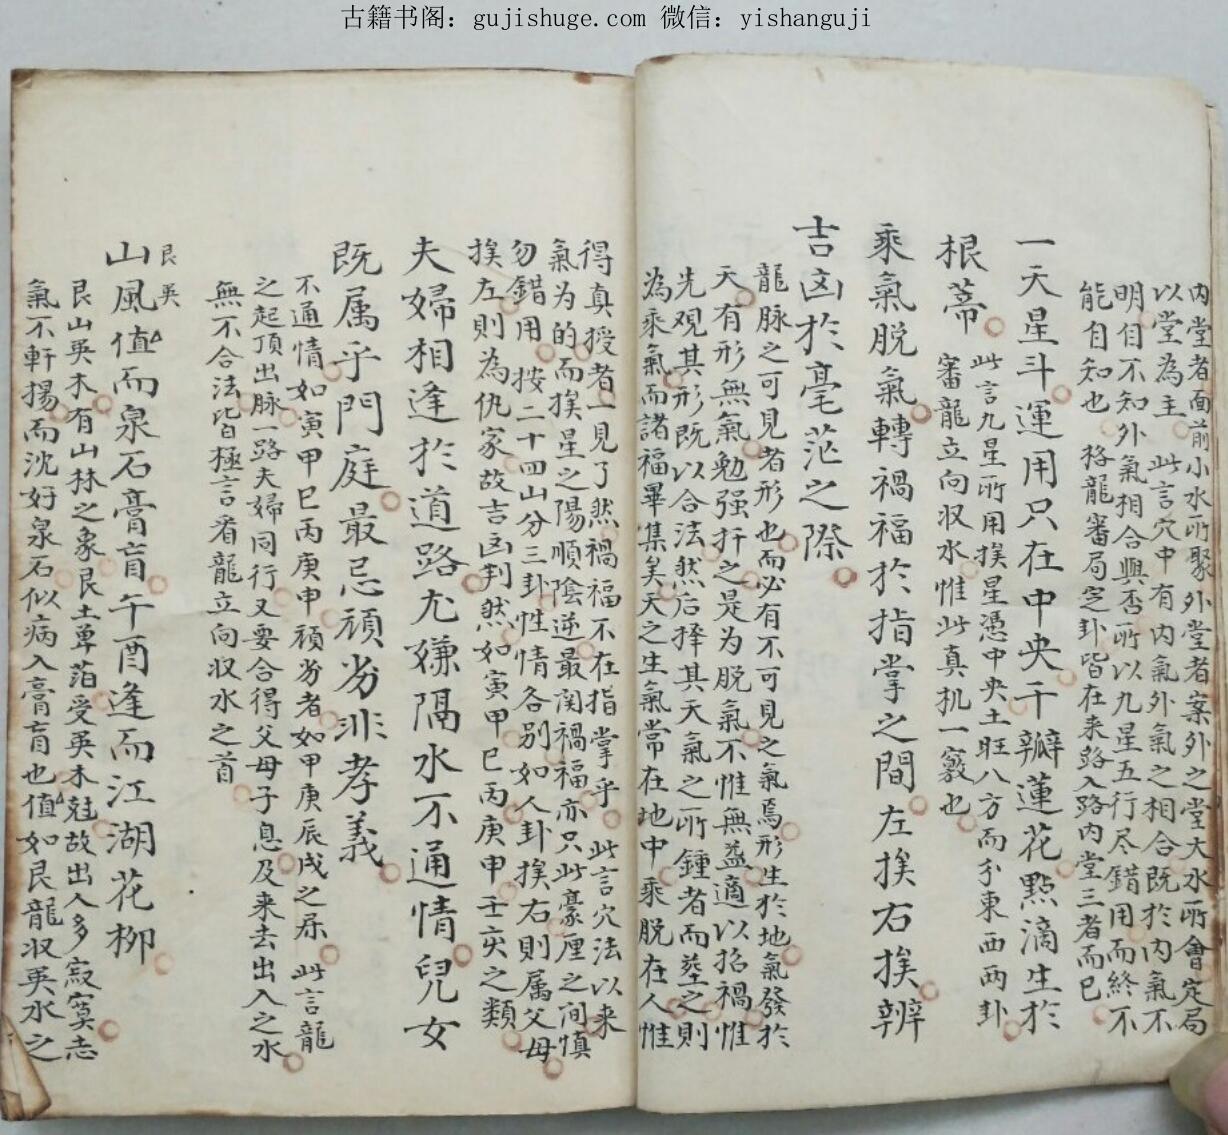 古籍书阁：gujishuge.com 微信：yishanguji
内堂者面前小水所聚外堂者案外之堂大水所會定局
以堂為主 此言穴中有内氣外氣之相合既於内氣不
明目不知外氣相合興否所以九星五行尽錯用而終不
能自知也 格龍審局定卦皆在来路入路内堂三者而已
一天星斗運用只在中央千瓣蓮花點滴生於
根蒂 此言九星所用挨星憑中央土旺八方而分東西两卦
審龍立向収水惟此真机一竅也
乘氣脱氣轉禍福於指掌之間左挨右挨辨
吉凶於毫茫之際
龍脉之可見者形也而必有不可見之氣焉形生於地氣發於
天有形無氣勉强扦之是为脱氣不惟無益適以招禍惟
先观其形既以合法然后择其天氣之所鍾者而塟之則
為乘氣而諸福畢集矣天之生氣常在地中乘脱在人惟
得真授者一見了然禍福不在指掌乎 此言穴法以来
氣为的而挨星之陽順陰逆最関禍福亦只此豪厘之间慎
勿錯用 按二十四山分三卦性情各别如人卦挨右則属父母
挨左則為仇家故吉凶判然如寅甲巳丙庚申壬亥之類
夫婦相逢於道路尤嫌隔水不通情兒女
既属乎門庭最忌頑劣非孝義
不通情如寅甲巳丙庚申頑劣者如甲庚辰戌之屏 此言龍
之起頂出脉一路夫婦同行又要合得父母子息及来去出入之水
無不合法皆極言看龍立向収水之首
艮 巽
山風值而泉石膏肓午酉逢而江湖花柳
艮山巽木有山林之象艮土卑茁受巽木尅故出人多寂寞志
氣不軒揚而沈好泉石似病入膏肓也值如艮龍収巽水之